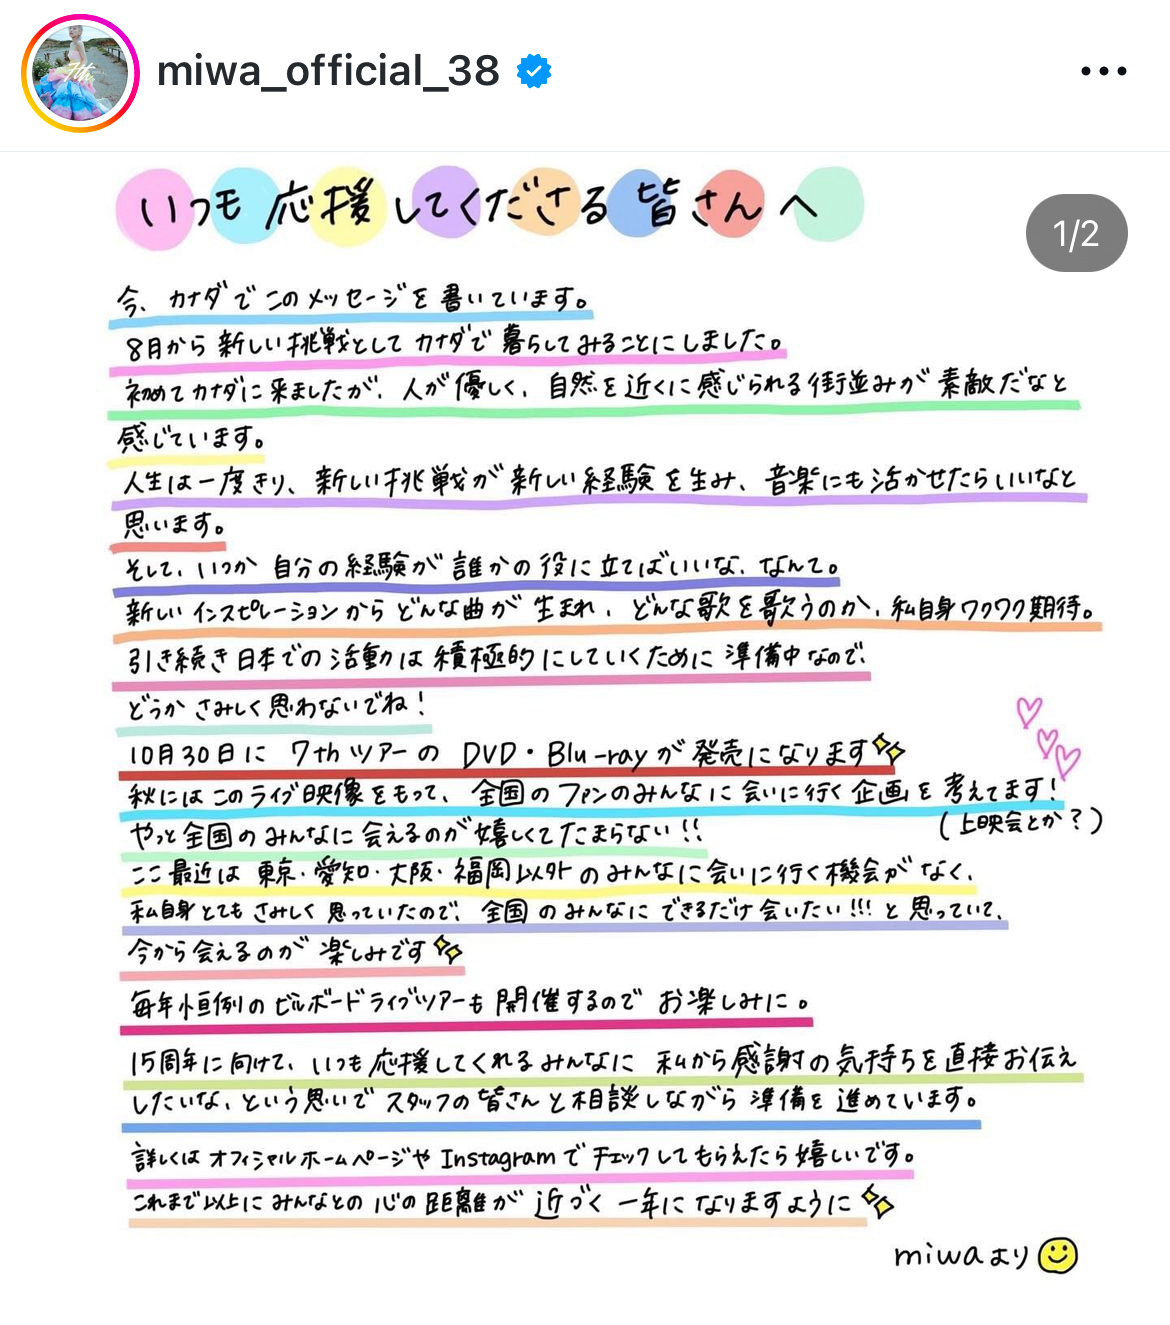 miwa_official_38
7th
1/2
いつも応援してくださる皆さんへ
今、カナダでこのメッセージを書いています。
8月から新しい挑戦としてカナダで暮らしてみることにしました。
初めてカナダに来ましたが、人が優しく、自然を近くに感じられる街並みが素敵だなと
感じています。
人生は一度きり、新しい挑戦が新しい経験を生み、音楽にも活かせたらいいなと
思います。
そして、いつか自分の経験が誰かの役に立てばいいな、なんて。
新しいインスピレーションからどんな曲が生まれ、どんな歌を歌うのか、私自身ワクワク期待。
引き続き日本での活動は積極的にしていくために準備中なので、
どうかさみしく思わないでね!
10月30日に7thツアーのDVD・Blu-rayが発売になります✨
秋にはこのライブ映像をもって、全国のファンのみんなに会いに行く企画を考えてます!
(上映会とか?)
やっと全国のみんなに会えるのが嬉しくてたまらない!!
ここ最近は東京・愛知・大阪・福岡以外のみんなに会いに行く機会がなく、
私自身とてもさみしく思っていたので、全国のみんなにできるだけ会いたい!!!と思っていて、
今から会えるのが楽しみです✨
毎年恒例のビルボードライブツアーも開催するのでお楽しみに。
15周年に向けて、いつも応援してくれるみんなに私から感謝の気持ちを直接お伝え
したいな、という思いでスタッフの皆さんと相談しながら準備を進めています。
詳しくはオフィシャルホームページやInstagramでチェックしてもらえたら嬉しいです。
これまで以上にみんなとの心の距離が近づく一年になりますように✨
miwaより